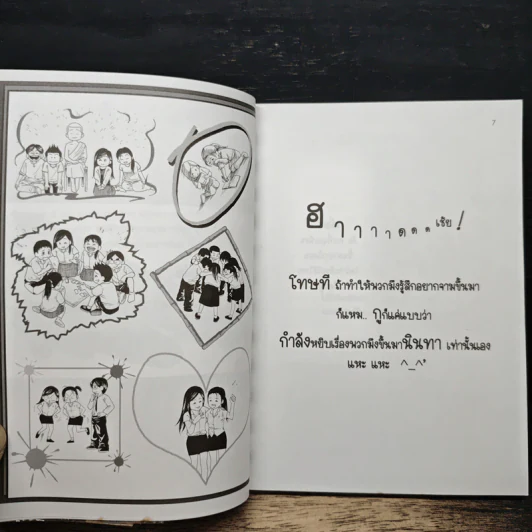 7
ฮาาาาดดดเช้ย!
โทษที ถ้าทำให้พวกมึงรู้สึกอยากจามขึ้นมา
ก็แหม.. กูก็แค่แบบว่า
กำลังหยิบเรื่องพวกมึงขึ้นมานินทา เท่านั้นเอง
แหะ แหะ ^_^*